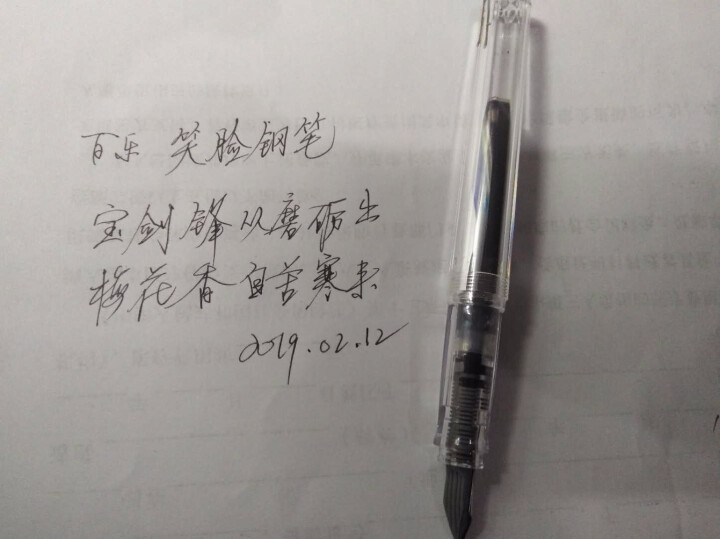 百乐 笑脸钢笔
宝剑锋从磨砺出
梅花香自苦寒来
2019.02.12